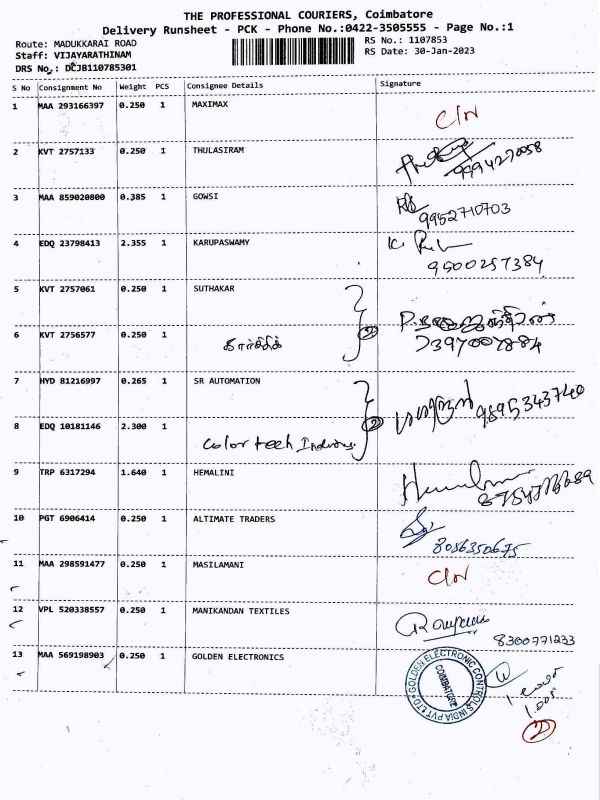 THE PROFESSIONAL COURIERS, Coimbatore
Delivery Runsheet - PCK - Phone No.:0422-3505555 - Page No.:1
Route: MADUKKARAI ROAD
RS No.: 1107853
Staff: VIJAYARATHINAM
RS Date: 30-Jan-2023
DRS No.: DCJB110785301
S No Consignment No Weight PCS Consignee Details Signature
1 MAA 293166397 0.250 1 MAXIMAX
2 KVT 2757133 0.250 1 THULASIRAM
9994270058
3 MAA 859020800 0.385 1 GOWSI
9952710703
4 EDQ 23798413 2.355 1 KARUPASWAMY
9500257384
5 KVT 2757061 0.250 1 SUTHAKAR
2
6 KVT 2756577 0.250 1 கார்த்திக்
7397007884
7 HYD 81216997 0.265 1 SR AUTOMATION
9895343740
2
8 EDQ 10181146 2.300 1
Colortech
9 TRP 6317294 1.640 1 HEMALINI
10 PGT 6906414 0.250 1 ALTIMATE TRADERS
8056350675
11 MAA 298591477 0.250 1 MASILAMANI
12 VPL 520338557 0.250 1 MANIKANDAN TEXTILES
8300771233
13 MAA 569198903 0.250 1 GOLDEN ELECTRONICS
GOLDEN ELECTRONIC CONTROLS INDIA PVT LTD
COIMBATORE
2